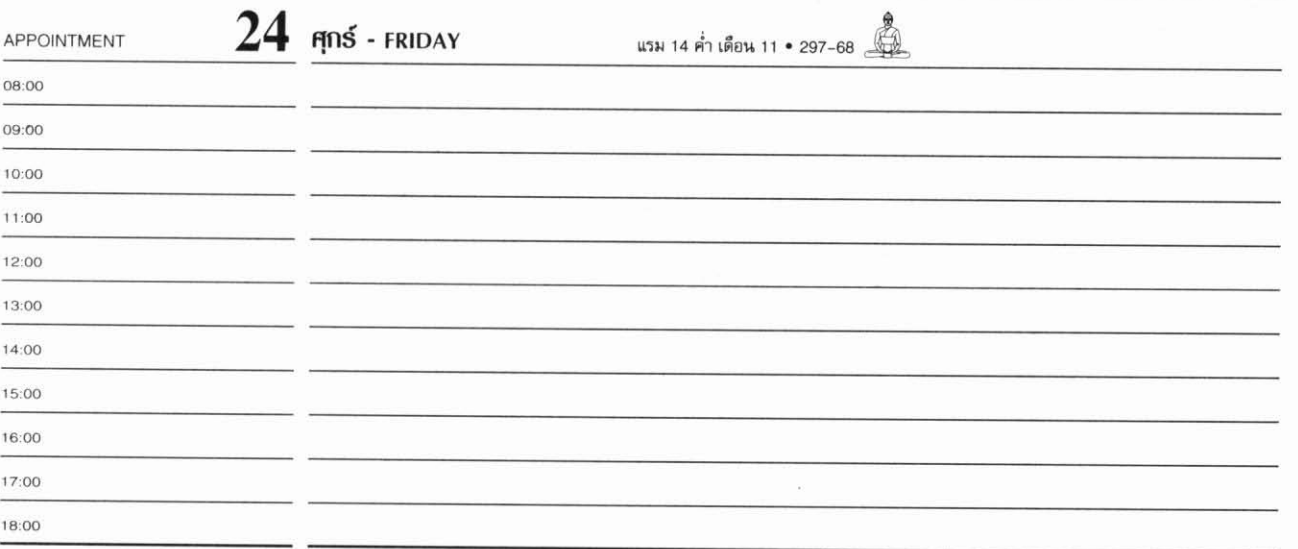 APPOINTMENT 24 ศุกร์ - FRIDAY แรม 14 ค่ำ เดือน 11 • 297-68
08:00
09:00
10:00
11:00
12:00
13:00
14:00
15:00
16:00
17:00
18:00